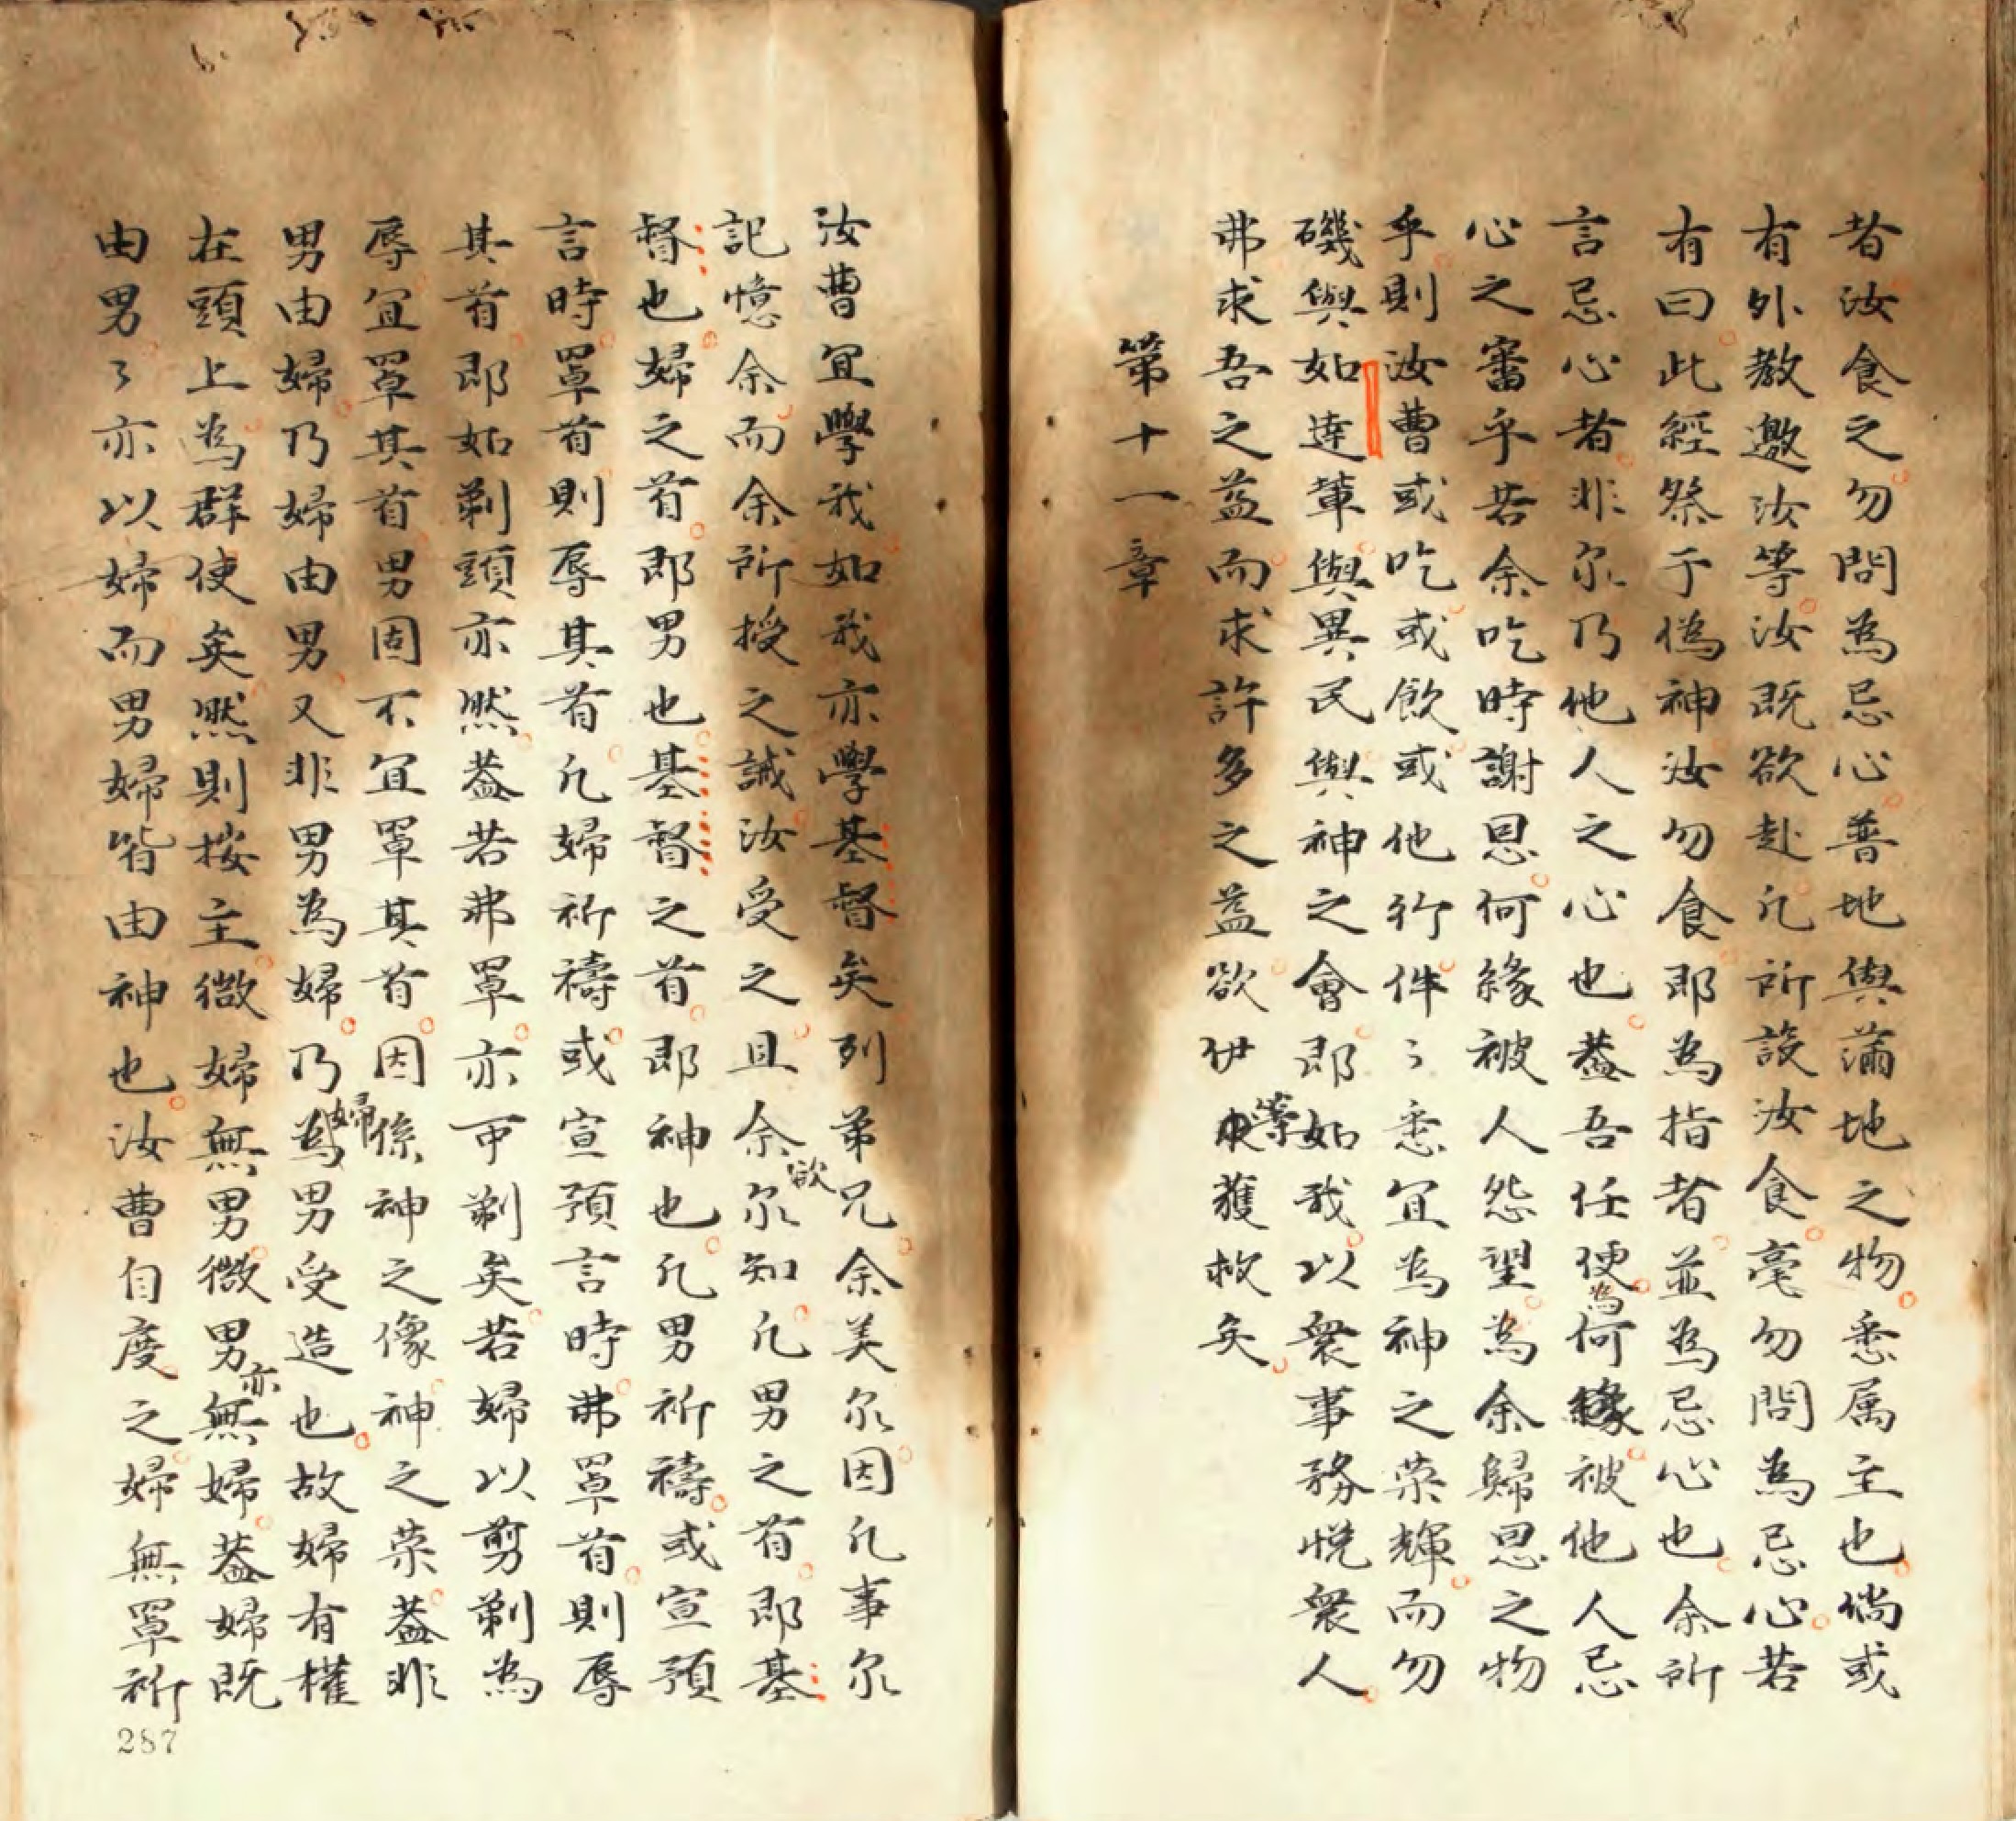 者汝食之勿問為忌心普地與滿地之物悉属主也倘或
有外教邀汝等汝既欲赴凢所設汝食毫勿問為忌心若
有曰此經祭于偽神汝勿食即為指者並為忌心也余所
言忌心者非尔乃他人之心也葢吾任便為何緣被他人忌
心之審乎若余吃時謝恩何緣被人怨望為余歸恩之物
乎則汝曹或吃或飲或他行件〻悉宜為神之荣輝而勿
磯與如達輩與異民與神之會即如我以衆事務悅衆人
弗求吾之益而求許多之益欲伊等獲救矣
第十一章
汝曹宜學我如我亦學基督矣列弟兄余美尔因凢事尔
記憶余而余所授之誡汝受之且余欲尔知凢男之首即基
督也婦之首即男也基督之首即神也凢男祈禱或宣預
言時罩首則辱其首凢婦祈禱或宣預言時弗罩首則辱
其首即如剃頭亦然葢若弗罩亦可剃矣若婦以剪剃為
辱宜罩其首男固不宜罩其首因係神之像神之荣葢非
男由婦乃婦由男男又非男為婦乃婦為男受造也故婦有權
在頭上為群使矣然則按主微婦無男微男亦無婦葢婦既
由男〻亦以婦而男婦皆由神也汝曹自度之婦無罩祈
287